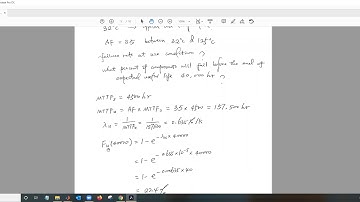 AF = 35 between 32°C & 125°C
failure rate at use condition ?
what percent of components will fail before the end of
expected useful life 40,000 hr ?
MTTF_s = 4500 hr
MTTF_u = AF × MTTF_s = 35 × 4500 = 157,500 hr
λ_u = 1/MTTF_u = 1/157500 = 0.635 %/K
F_u(40000) = 1 - e^{-λ_u × 40000}
= 1 - e^{-0.635 × 10^{-5} × 40000}
= 1 - e^{-0.00635 × 40}
= 22.4 %